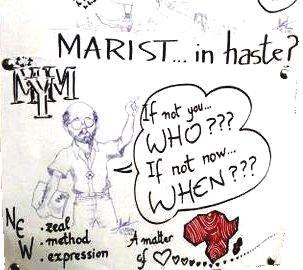 MARIST... in haste?
MYM
If not you...
WHO???
If not now...
WHEN???
NEW
.zeal
.method
.expression
A matter
of